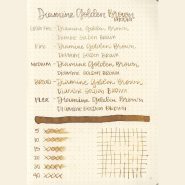 Diamine Golden Brown
Diamine Golden Brown
Diamine Golden Brown
FINE - Diamine Golden Brown
Diamine Golden Brown
MEDIUM - Diamine Golden Brown
Diamine Golden Brown
BROAD - Diamine Golden Brown
Diamine Golden Brown
FLEX - Diamine Golden Brown
Diamine Golden Brown
5
10
20
30
40